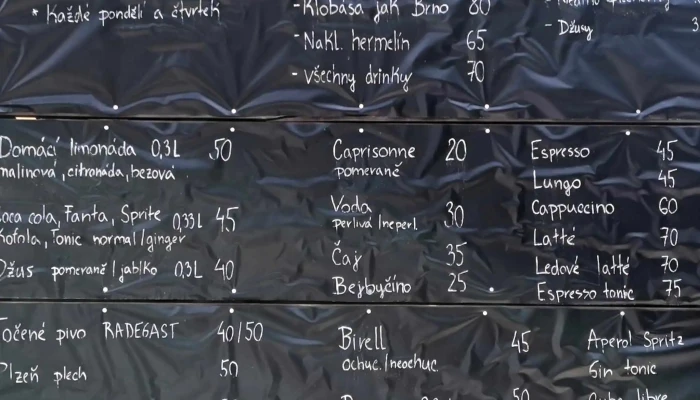 * Každé pondělí a čtvrtek
- Klobása jak Brno 80
- Nakl. hermelín 65
- všechny drinky 70
- Džusy 3
Domácí limonáda 0,3L 50
malinová, citronáda, bezová
Coca cola, Fanta, Sprite 0,33L 45
Kofola, Tonic normal/ginger
Džus pomeranč/jablko 0,3L 40
Caprisonne 20
pomeranč
Voda 30
perlivá/neperl.
Čaj 35
Bejbyčíno 25
Espresso 45
Lungo 45
Cappuccino 60
Latté 70
Ledové latté 70
Espresso tonic 75
Točené pivo RADEGAST 40/50
Plzeň plech 50
Birell 45
ochuc./neochuc.
50
Aperol Spritz
Gin tonic
Cuba libre